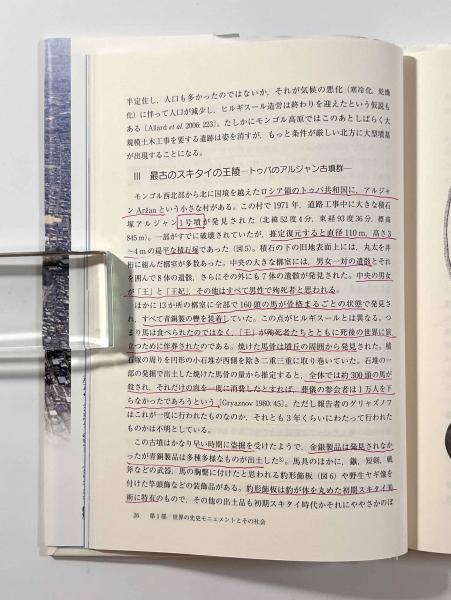 半定住し、人口も多かったのではないか、それが気候の悪化（寒冷化、乾燥
化）に伴って人口が減少し、ヒルギスール造営は終わりを迎えたという仮説も
ある（Allard et al. 2006: 223）。たしかにモンゴル高原ではこのあとしばらく大
規模土木工事を要する遺跡は姿を消すが、もっと条件が厳しい北方に大型墳墓
が出現することになる。
III 最古のスキタイの王陵―トゥバのアルジャン古墳群―
モンゴル西北部から北に国境を越えたロシア領のトゥバ共和国に、アルジャ
ン Aržan という小さな村がある。この村で 1971 年、道路工事中に大きな積石
塚アルジャン1号墳が発見された（北緯 52 度 4 分、東経 93 度 36 分、標高
845 m）。一部がすでに破壊されていたが、推定復元すると直径 110 m、高さ 3
～4 m の扁平な積石塚であった（図 5）。積石の下の旧地表面上には、丸太を井
桁に組んだ槨室が多数あった。中央の大きな槨室には、男女一対の遺骸とそれ
を囲んで 8 体の遺骸、さらにその外にも 7 体の遺骸が発見された。中央の男女
が「王」と「王妃」、その他はすべて男性で殉死者と思われる。
ほかに 13 か所の槨室に全部で 160 頭の馬が骨格まるごとの状態で発見さ
れ、すべて青銅製の轡を装着していた。この点がヒルギスールとは異なる。つ
まり馬は食べられたのではなく、「王」が殉死者たちとともに死後の世界に旅
立つために伴葬されたのである。焼けた馬骨は墳丘の周囲から発見された。積
石塚の周りを円形の小石堆が西側を除き二重三重に取り巻いていた。石堆の一
部の発掘で出土した焼けた馬骨の量から推定すると、全体では約 300 頭の馬が
殺され、それだけの肉を一度に消費したとすれば、葬儀の参会者は 1 万人を下
らなかったであろうという〔Gryaznov 1980: 45〕。ただし報告者のグリャズノフ
はこれが一度に行われたものなのか、それとも 3 年くらいにわたって行われた
ものかは不明としている。
この古墳はかなり早い時期に盗掘を受けたようで、金銀製品は発見されなか
ったが青銅製品は多種多様なものが出土した3)。馬具のほかに、鏃、短剣、戦
斧などの武器、馬の胸繫に付けたと思われる豹形飾板（図 6）や野生ヤギ像を
付けた竿頭飾などの装飾品がある。豹形飾板は豹が体を丸めた初期スキタイ美
術に特有のもので、その他の出土品も初期スキタイ時代かそれにややさかのぼ
36 第1部 世界の先史モニュメントとその社会